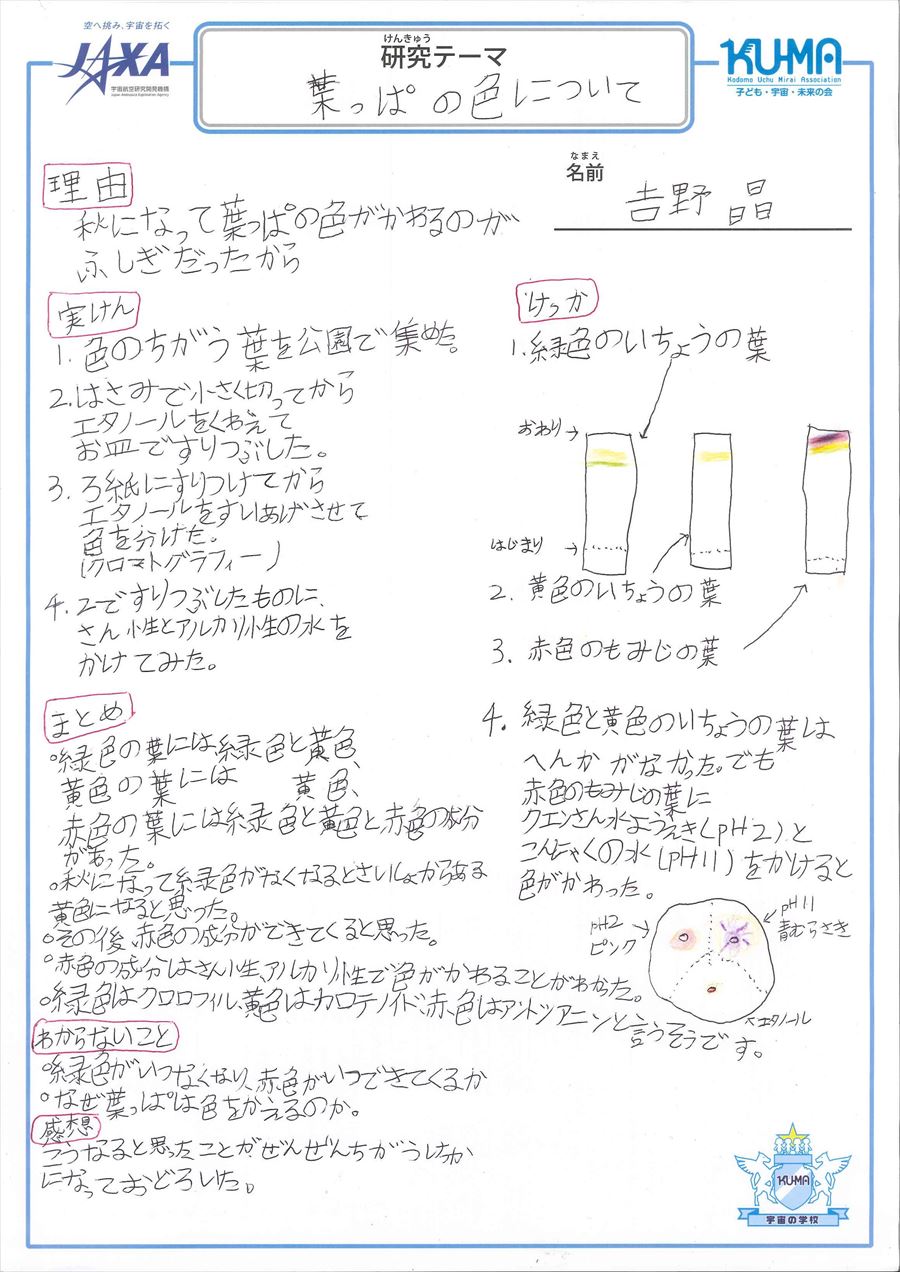 空へ挑み、宇宙を拓く
JAXA
宇宙航空研究開発機構
Japan Aerospace Exploration Agency
けんきゅう
研究テーマ
葉っぱの色について
KU-MA
Kodomo Uchu Mirai Association
子ども・宇宙・未来の会
なまえ
名前
吉野 晶
理由
秋になって葉っぱの色がかわるのが
ふしぎだったから
実けん
1. 色のちがう葉を公園で集めた。
2. はさみで小さく切ってから
エタノールをくわえて
お皿ですりつぶした。
3. ろ紙にすりつけてから
エタノールをすいあげさせて
色を分けた。
(クロマトグラフィー)
4. 2ですりつぶしたものに、
さん性とアルカリ性の水を
かけてみた。
けっか
1. 緑色のいちょうの葉
おわり→
はじまり→
2. 黄色のいちょうの葉
3. 赤色のもみじの葉
4. 緑色と黄色のいちょうの葉は
へんかがなかった。でも
赤色のもみじの葉に
クエンさん水ようえき(pH2)と
こんにゃくの水(pH11)をかけると
色がかわった。
pH2
ピンク
pH11
青むらさき
エタノール
まとめ
○緑色の葉には緑色と黄色、
黄色の葉には 黄色、
赤色の葉には緑色と黄色と赤色の成分
があった。
○秋になって緑色がなくなるとさいしょからある
黄色になると思った。
○その後、赤色の成分ができてくると思った。
○赤色の成分はさん性、アルカリ性で色がかわることがわかった。
○緑色はクロロフィル、黄色はカロテノイド、赤色はアントシアニンと言うそうです。
わからないこと
○緑色がいつなくなり、赤色がいつできてくるか
○なぜ葉っぱは色をかえるのか。
感想
こうなると思ったことがぜんぜんちがうけっか
になっておどろいた。
KU-MA
宇宙の学校